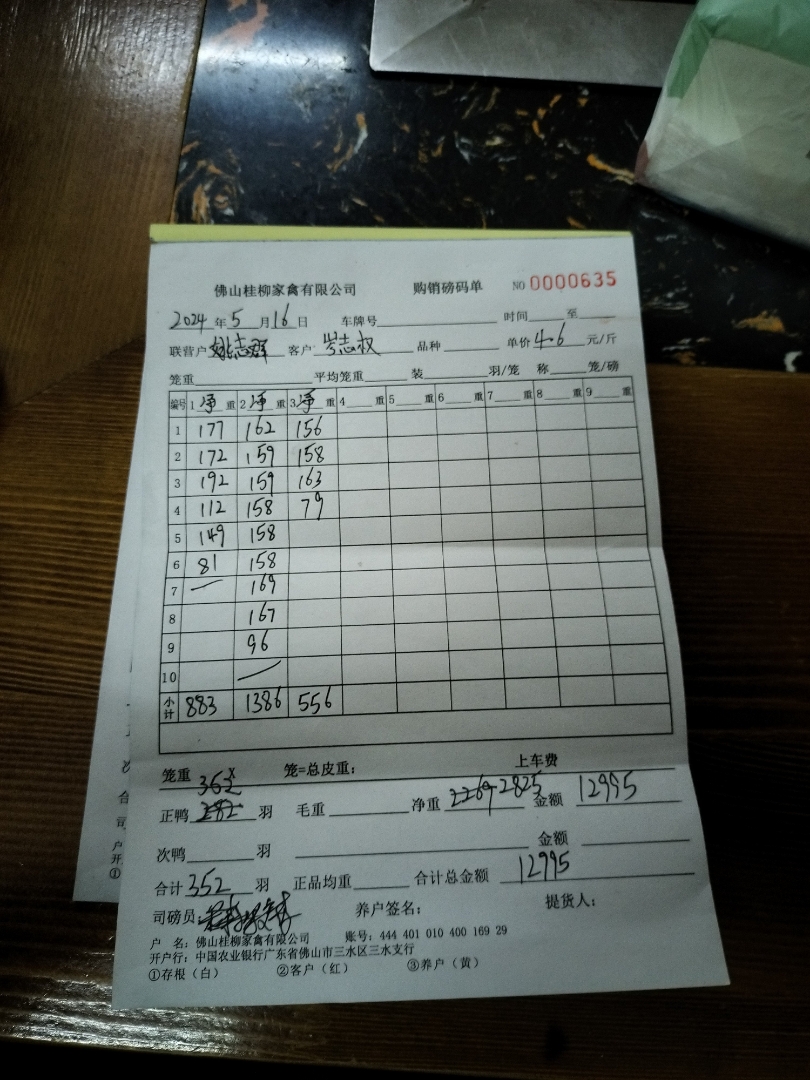 佛山桂柳家禽有限公司 购销磅码单 NO 0000635
2024年5月16日 车牌号 时间 至
联营户 志群 客户 岑志权 品种 单价 4.6 元/斤
笼重 平均笼重 装 羽/笼 称 笼/磅
编号 1净重 2净重 3净重 4 重 5 重 6 重 7 重 8 重 9 重
1 177 162 156
2 172 159 158
3 192 159 163
4 112 158 79
5 149 158
6 81 158
7 169
8 167
9 96
10
小计 883 1386 556
笼重 笼=总皮重: 上车费
正鸭 羽 毛重 净重 2269 2825 金额 12995
次鸭 羽 金额
合计 352 羽 正品均重 合计总金额 12995
司磅员: 养户签名: 提货人:
户 名: 佛山桂柳家禽有限公司 账号: 444 401 010 400 169 29
开户行: 中国农业银行广东省佛山市三水区三水支行
①存根(白) ②客户(红) ③养户(黄)